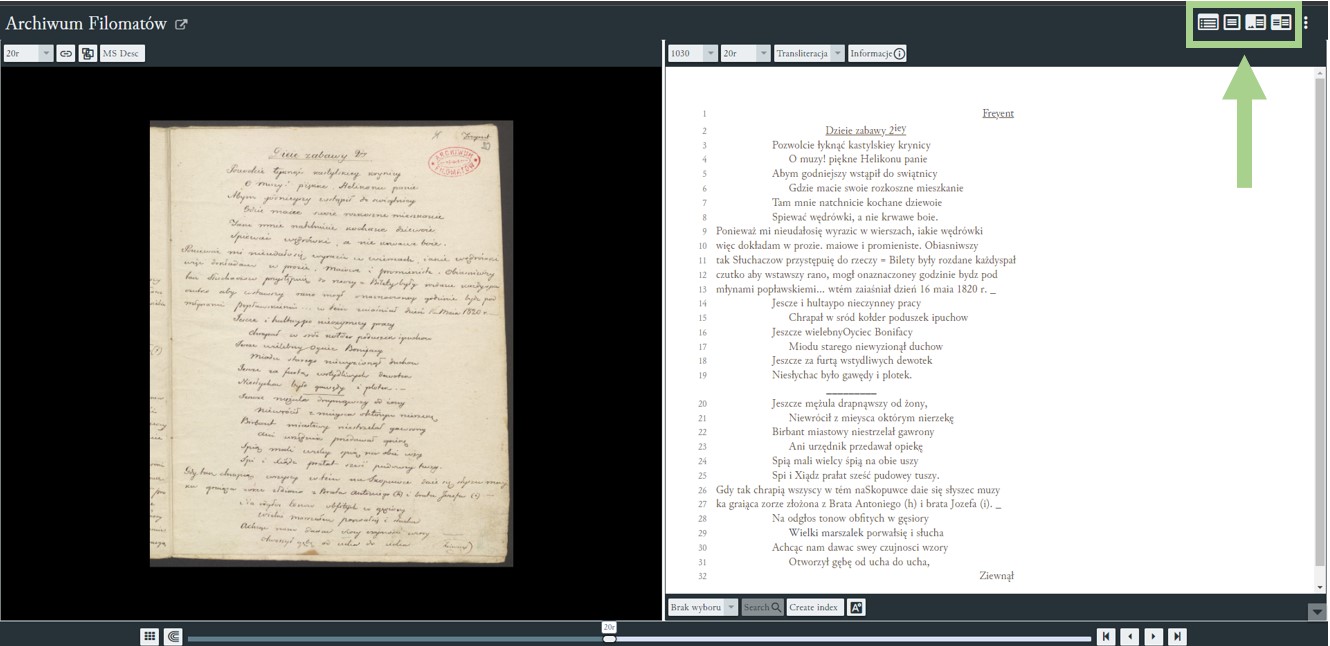 Archiwum Filomatów
20r
MS Desc
1030
20r
Transliteracja
Informacje
Freyent
20
ARCHIWUM FILOMATÓW
Dzieie zabawy 2iey
1 Freyent
2 Dzieie zabawy 2iey
3 Pozwolcie łyknąć kastylskiey krynicy
4 O muzy! piękne Helikonu panie
5 Abym godniejszy wstąpił do swiątnicy
6 Gdzie macie swoie rozkoszne mieszkanie
7 Tam mnie natchnicie kochane dziewoie
8 Spiewać wędrówki, a nie krwawe boie.
9 Ponieważ mi nieudałosię wyrazic w wierszach, iakie wędrówki
10 więc dokładam w prozie. maiowe i promieniste. Obiasniwszy
11 tak Słuchaczow przystępuię do rzeczy = Bilety były rozdane każdyspał
12 czutko aby wstawszy rano, mogł onaznaczoney godzinie bydz pod
13 młynami popławskiemi... wtém zaiaśniał dzień 16 maia 1820 r. _
14 Jescze i hultaypo nieczynney pracy
15 Chrapał w sród kołder poduszek ipuchow
16 Jeszcze wielebnyOyciec Bonifacy
17 Miodu starego niewyzionął duchow
18 Jeszcze za furtą wstydliwych dewotek
19 Niesłychac było gawędy i plotek.
20 Jeszcze mężula drapnąwszy od żony,
21 Niewrócił z mieysca októrym nierzekę
22 Birbant miastowy niestrzelał gawrony
23 Ani urzędnik przedawał opiekę
24 Spią mali wielcy śpią na obie uszy
25 Spi i Xiądz prałat sześć pudowey tuszy.
26 Gdy tak chrapią wszyscy w tém naSkopuwce daie się słyszec muzy
27 ka graiąca zorze złożona z Brata Antoniego (h) i brata Jozefa (i). _
28 Na odgłos tonow obfitych w gęsiory
29 Wielki marszalek porwałsię i słucha
30 Achcąc nam dawac swey czujnosci wzory
31 Otworzył gębę od ucha do ucha,
32 Ziewnął
Brak wyboru
Search
Create index
20r